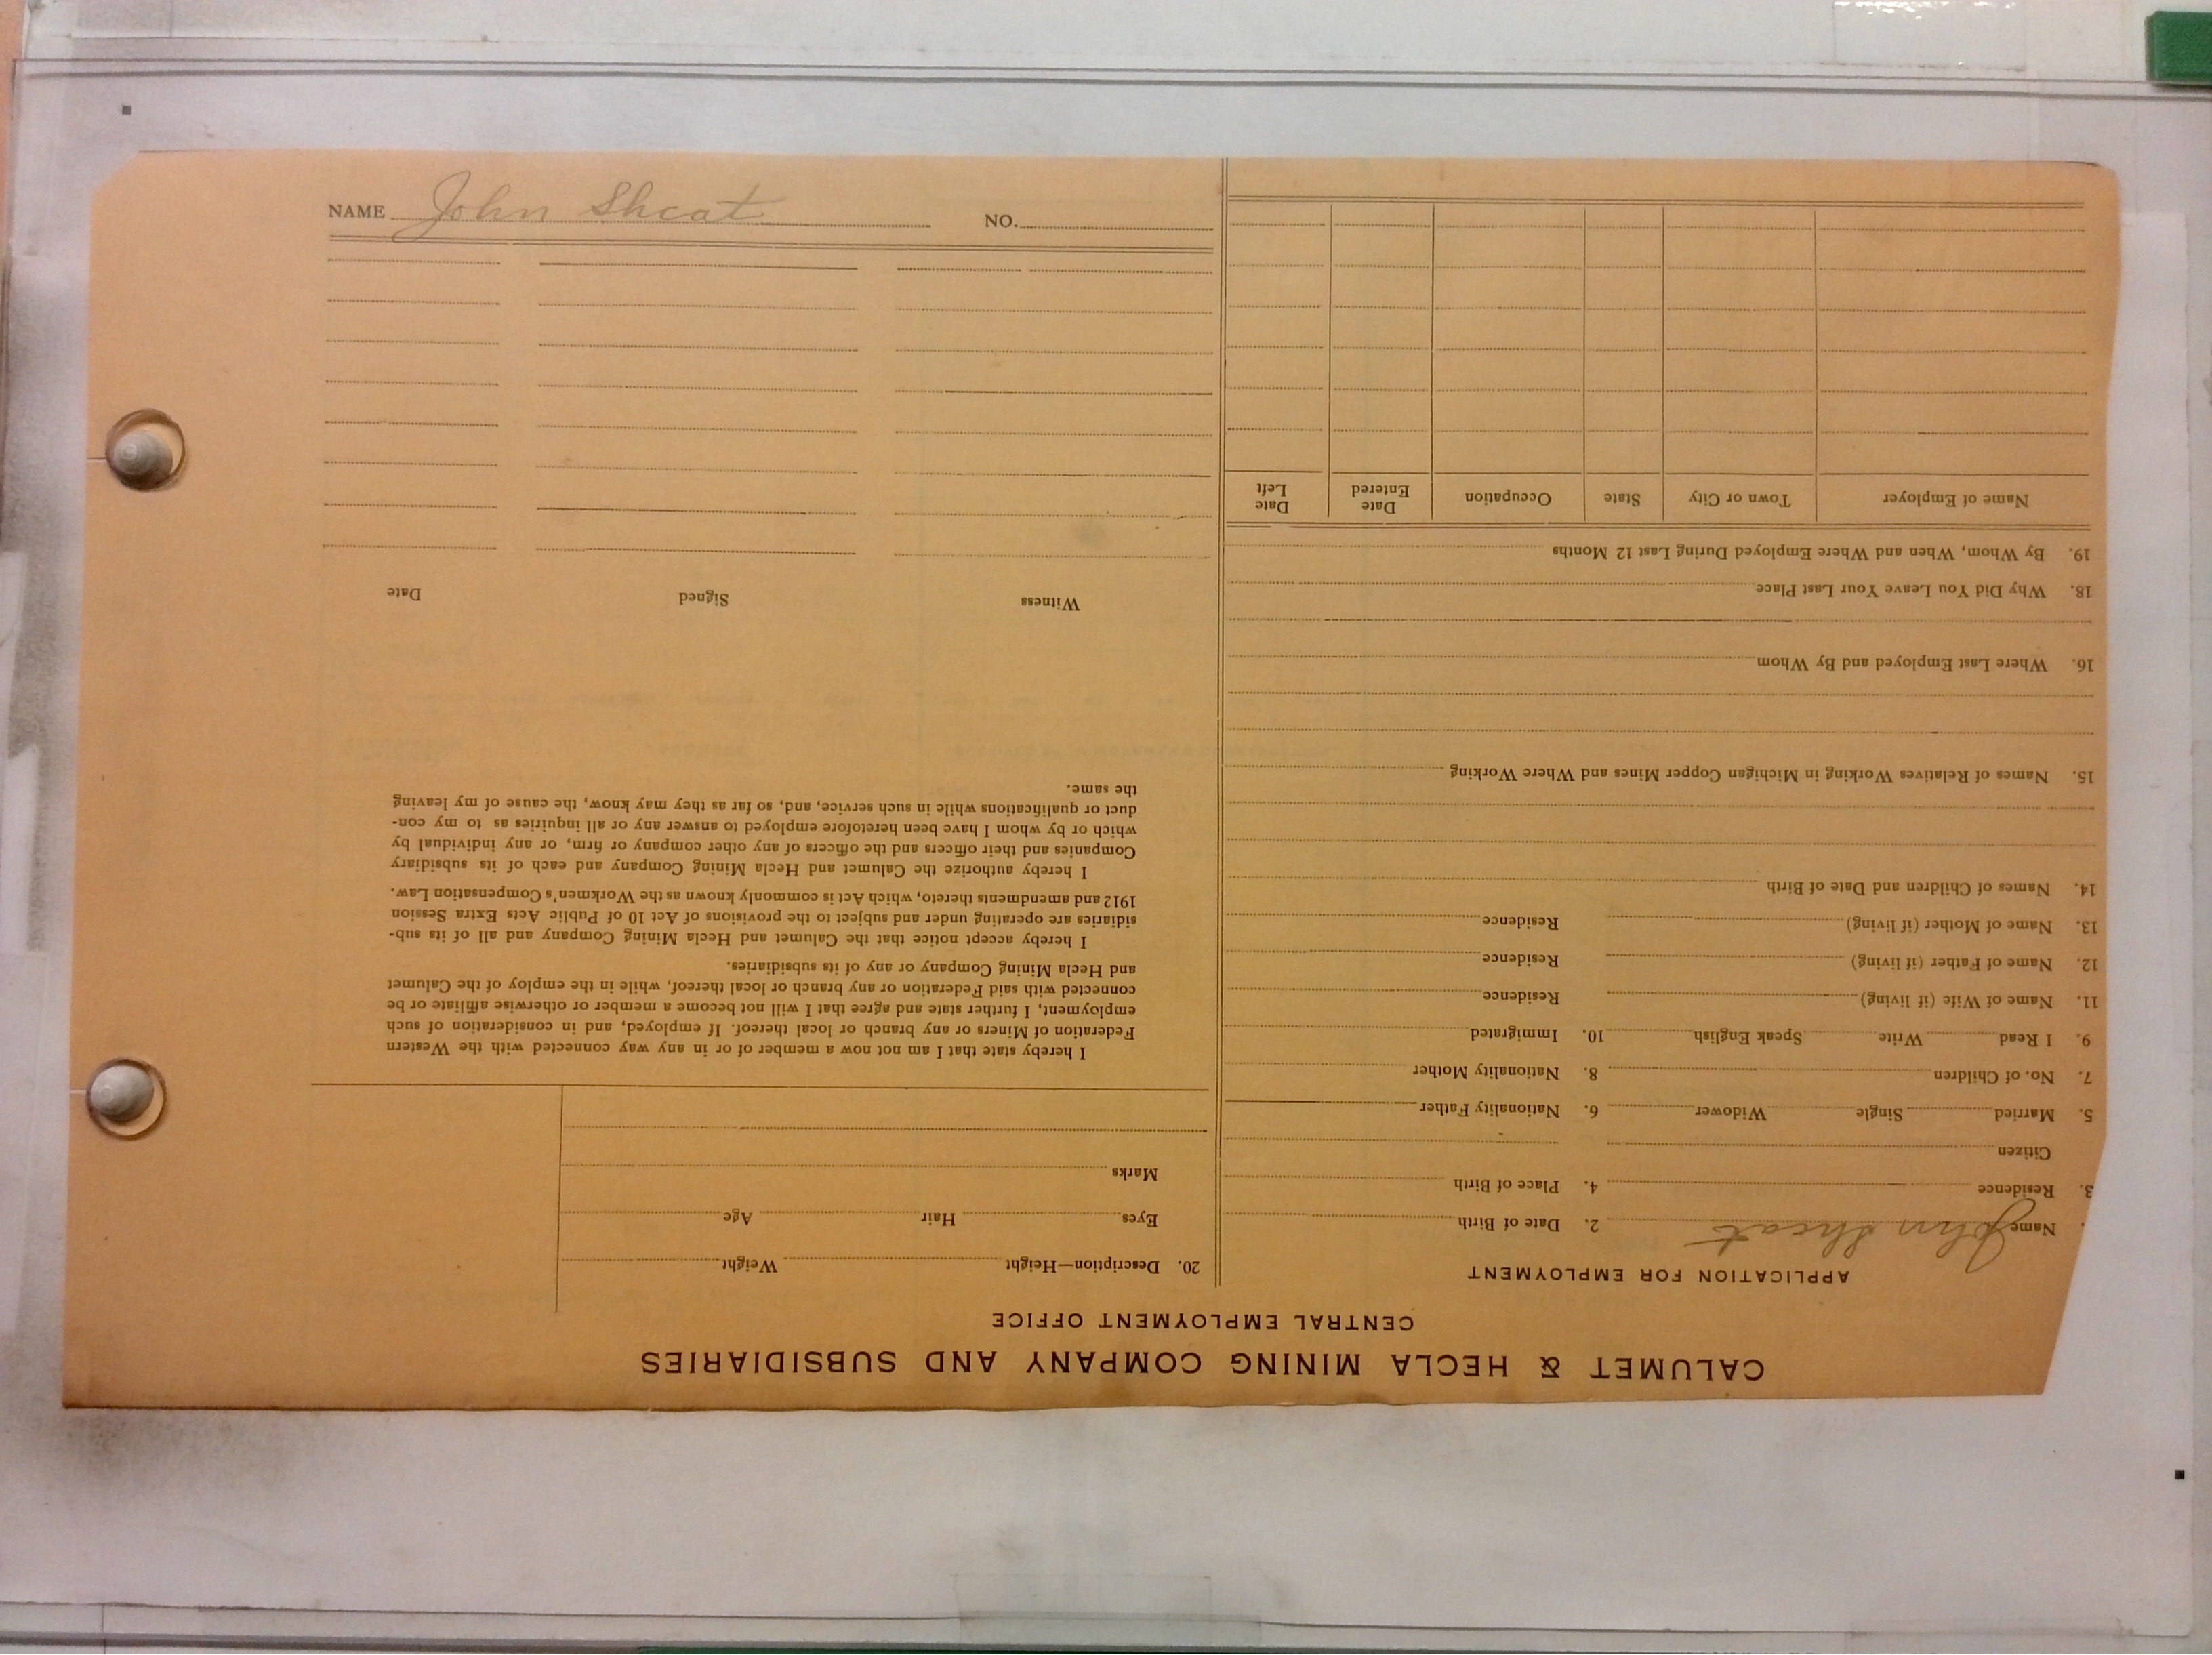 CALUMET & HECLA MINING COMPANY AND SUBSIDIARIES
CENTRAL EMPLOYMENT OFFICE
APPLICATION FOR EMPLOYMENT
Name John Sheat 2. Date of Birth
3. Residence 4. Place of Birth
Citizen
5. Married Single Widower 6. Nationality Father
7. No. of Children 8. Nationality Mother
9. I Read Write Speak English 10. Immigrated
11. Name of Wife (if living) Residence
12. Name of Father (if living) Residence
13. Name of Mother (if living) Residence
14. Names of Children and Date of Birth
15. Names of Relatives Working in Michigan Copper Mines and Where Working
16. Where Last Employed and By Whom
18. Why Did You Leave Your Last Place
19. By Whom, When and Where Employed During Last 12 Months
Name of Employer Town or City State Occupation Date Entered Date Left
20. Description—Height Weight
Eyes Hair Age
Marks
I hereby state that I am not now a member of or in any way connected with the Western
Federation of Miners or any branch or local thereof. If employed, and in consideration of such
employment, I further state and agree that I will not become a member or otherwise affiliate or be
connected with said Federation or any branch or local thereof, while in the employ of the Calumet
and Hecla Mining Company or any of its subsidiaries.
I hereby accept notice that the Calumet and Hecla Mining Company and all of its sub-
sidiaries are operating under and subject to the provisions of Act 10 of Public Acts Extra Session
1912 and amendments thereto, which Act is commonly known as the Workmen's Compensation Law.
I hereby authorize the Calumet and Hecla Mining Company and each of its subsidiary
Companies and their officers and the officers of any other company or firm, or any individual by
which or by whom I have been heretofore employed to answer any or all inquiries as to my con-
duct or qualifications while in such service, and, so far as they may know, the cause of my leaving
the same.
Witness Signed Date
NAME John Sheat NO.